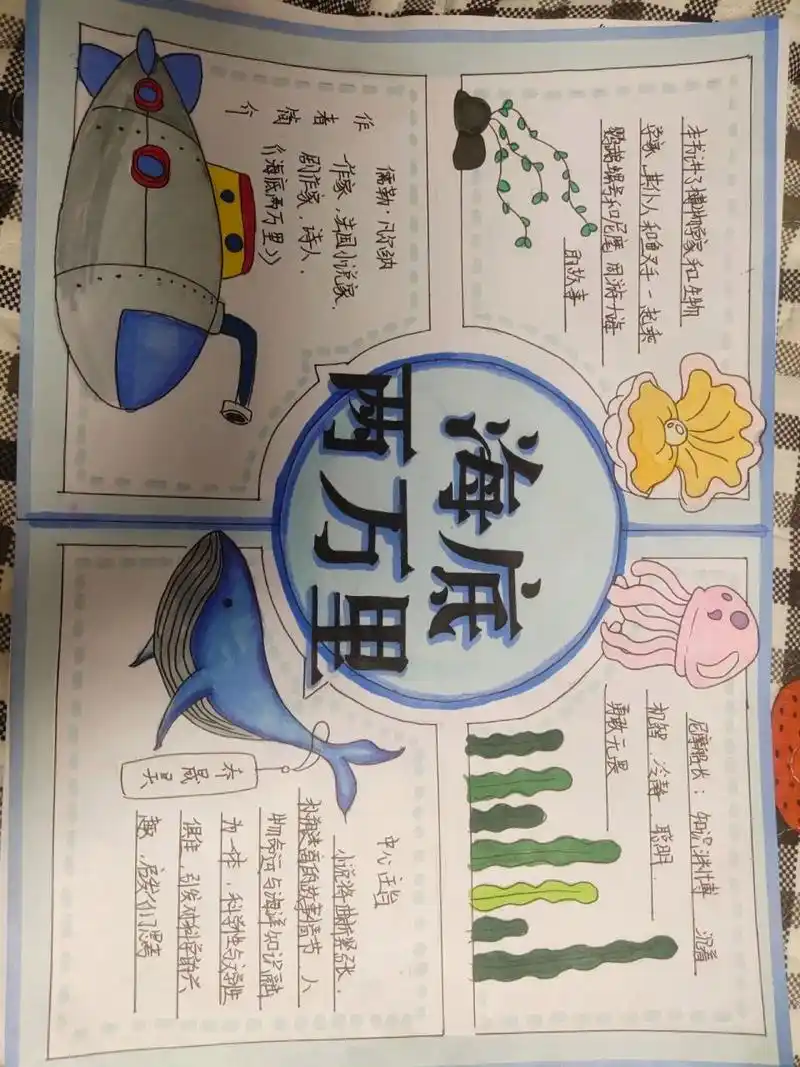 本书讲了博物学家和生物
学家、其仆人和鱼叉手一起乘
鹦鹉螺号和尼摩 周游大海
的故事
尼摩船长：知识渊博 沉着
机智、冷静 聪明、
勇敢无畏
海底
两万里
作者简介
儒勒·凡尔纳
作家、法国小说家、
剧作家、诗人、
《海底两万里》
中心主旨
小说将曲折紧张、
扑朔迷离的故事情节 人
物命运与海洋知识融
为一体，科学性与文学性
俱佳，引发对科学的兴
趣，启发人们思考